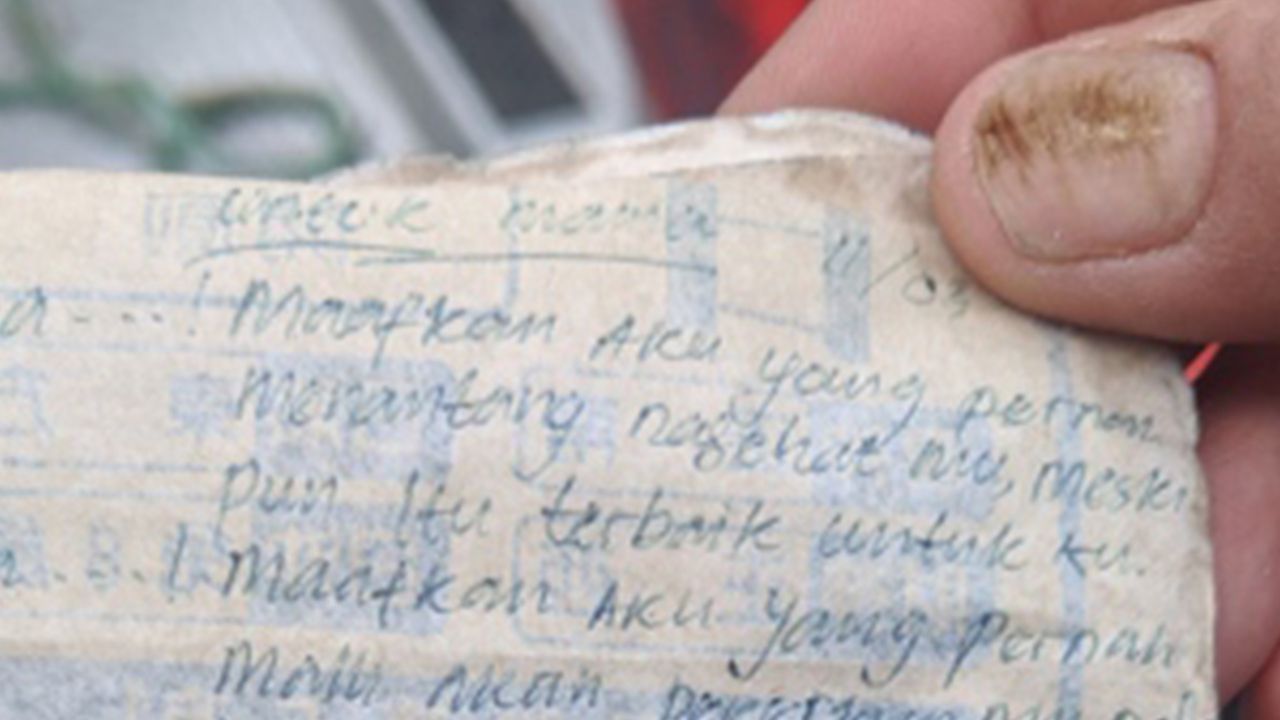 untuk mama
11/03
a....! Maafkan AKu yang pernah
Menantang nasehat mu, Meski
pun Itu terbaik untuk ku.
a. 3..! Maafkan AKu yang Pernah
Malu Akan